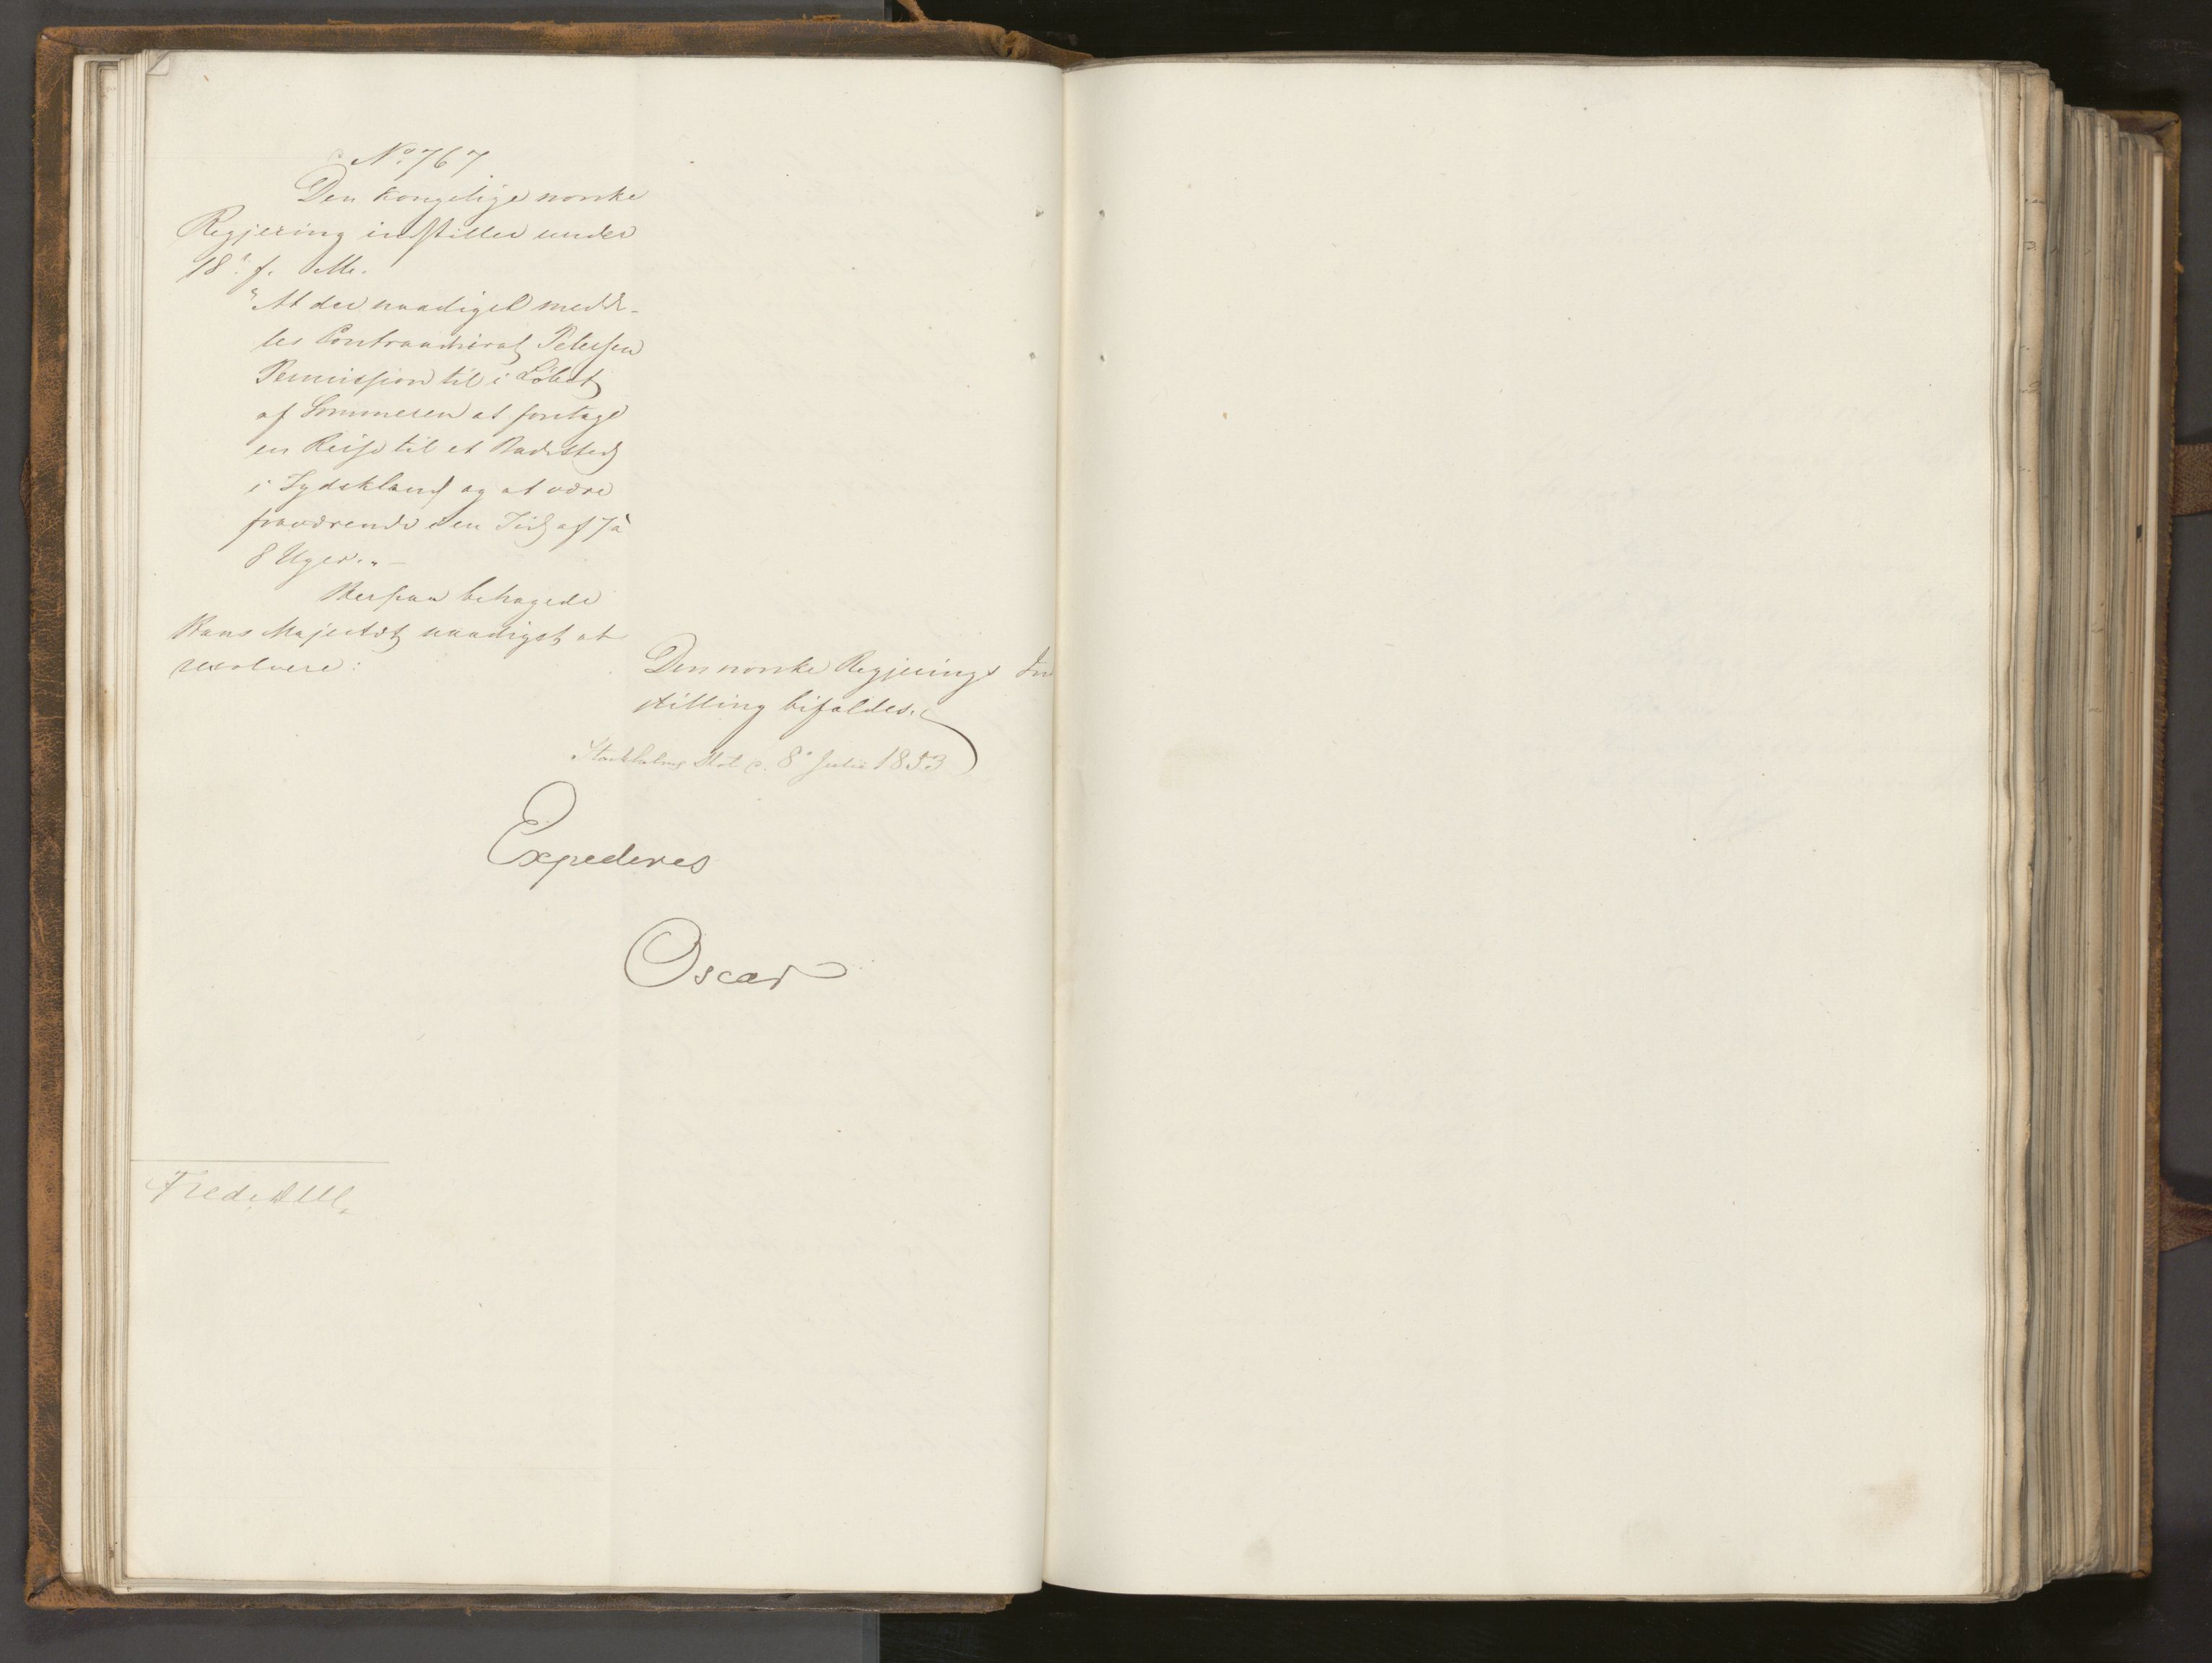 No. 767
Den kongelige norske
Regjering indstiller under
18de f. M.
"At der naadigst medde-
les Contraadmiral Petersen
Permission til i Løbet
af Sommeren at foretage
en Reise til et Badested
i Tydskland og at være
fraværende i en Tid af 7 à
8 Uger." -
Herpaa behagede
Hans Majestæt naadigst at
resolvere:
Den norske Regjerings In
stilling bifaldes.
Stockholms Slot d. 8de Julii 1853
Expederes
Oscar